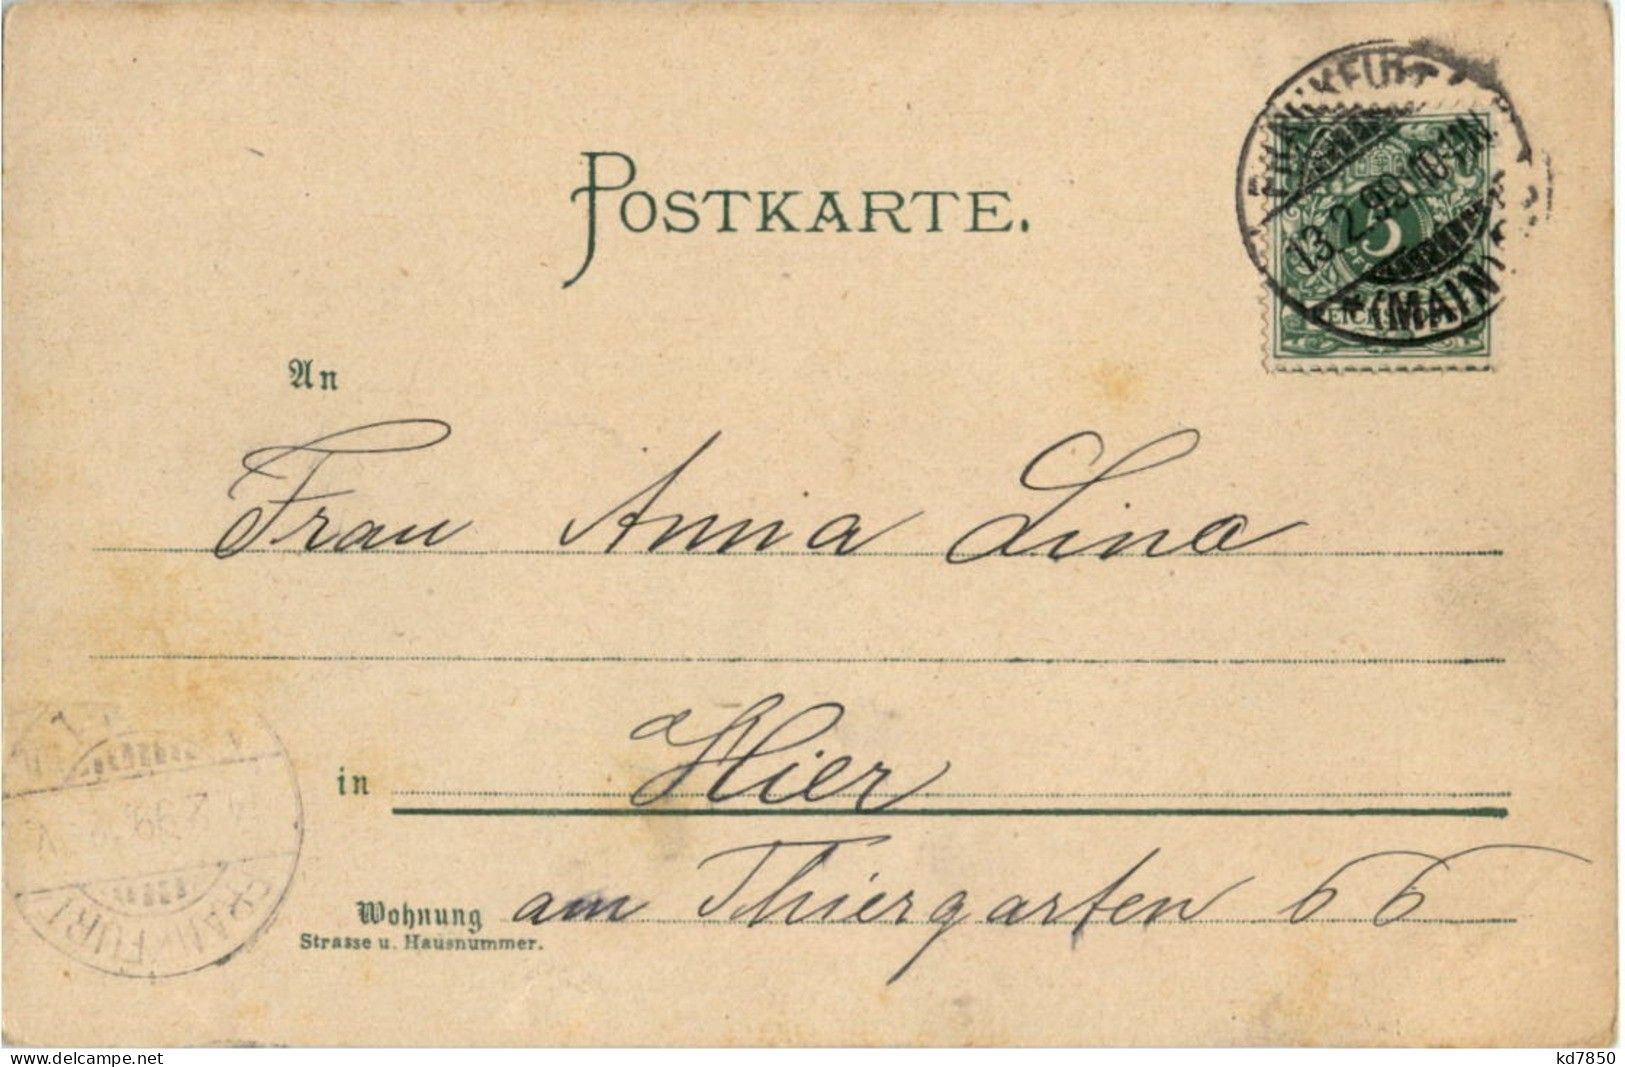 POSTKARTE.
FRANKFURT
13.2.99. 10-11N.
* (MAIN)
5
REICHSPOST
An
Frau Anna Lina
in Hier
Wohnung am Thiergarten 66
Strasse u. Hausnummer.
2 99
FRANKFURT
www.delcampe.net
kd7850